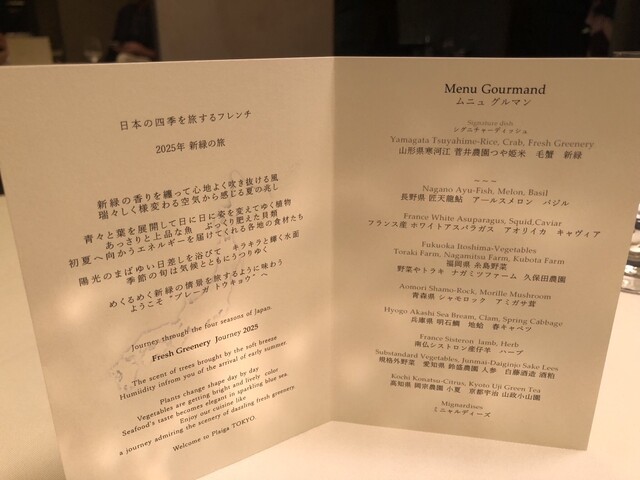 日本の四季を旅するフレンチ
2025年 新緑の旅
新緑の香りを纏って心地よく吹き抜ける風
瑞々しく様変わる空気から感じる夏の兆し
青々と葉を展開して日に日に姿を変えてゆく植物
あっさりと上品な魚　ぷっくり肥えた貝類
初夏へ向かうエネルギーを届けてくれる各地の食材たち
陽光のまばゆい日差しを浴びて　キラキラと輝く水面
季節の旬は気候とともにうつりゆく
めくるめく新緑の情景を旅するように味わう
ようこそ “プレーガ トウキョウ” へ
Journey through the four seasons of Japan.
Fresh Greenery Journey 2025
The scent of trees brought by the soft breeze
Humiidity infrom you of the arrival of early summer
Plants change shape day by day
Vegetables are getting bright and lively color
Seafood's taste becomes elegant in sparkling blue sea.
Enjoy our cuisine like
a journey admiring the scenery of dazzling fresh greenery.
Welcome to Plaiga TOKYO.
Menu Gourmand
ムニュ グルマン
Signature dish
シグニチャーディッシュ
Yamagata Tsuyahime-Rice, Crab, Fresh Greenery
山形県寒河江 菅井農園つや姫米　毛蟹　新緑
~~~
Nagano Ayu-Fish, Melon, Basil
長野県 匠天龍鮎　アールスメロン　バジル
France White Asuparagus, Squid,Caviar
フランス産 ホワイトアスパラガス　アオリイカ　キャヴィア
Fukuoka Itoshima-Vegetables
Toraki Farm, Nagamitsu Farm, Kubota Farm
福岡県 糸島野菜
野菜やトラキ　ナガミツファーム　久保田農園
Aomori Shamo-Rock, Morille Mushroom
青森県 シャモロック　アミガサ茸
Hyogo Akashi Sea Bream, Clam, Spring Cabbage
兵庫県 明石鯛　地蛤　春キャベツ
France Sisteron lamb, Herb
南仏シストロン産仔羊　ハーブ
Substandard Vegetables, Junmai-Daiginjo Sake Lees
規格外野菜　愛知県 鈴盛農園 人参　白藤酒造 酒粕
Kochi Konatsu-Citrus, Kyoto Uji Green Tea
高知県 岡宗農園 小夏　京都宇治 山政小山園
Mignardises
ミニャルディーズ